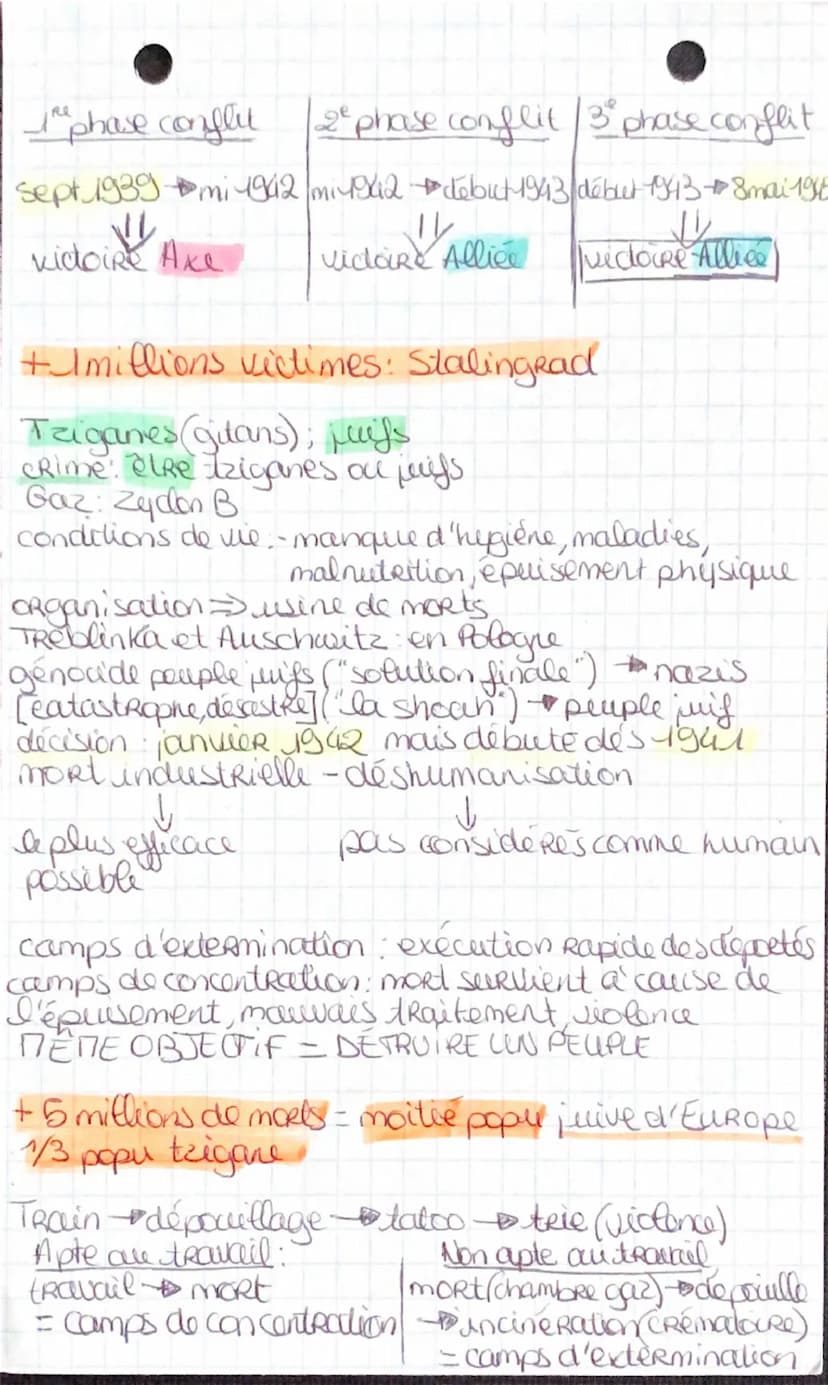 1re phase conflit | 2e phase conflit | 3e phase conflit
sept 1939 → mi-1942 | mi-1942 → début 1943 | début 1943 → 8 mai
victoire Axe | victoire Alliée | victoire Alliée
+ 1 millions victimes : Stalingrad
Tziganes (gitans) ; juifs
crime : être tziganes ou juifs
Gaz : Zyclon B
conditions de vie : - manque d'hygiène, maladies,
malnutrition, épuisement physique
organisation ⇒ usine de morts
Treblinka et Auschwitz : en Pologne
génocide peuple juifs ("solution finale") → nazis
[catastrophe, désastre] ("la shoah") → peuple juif
décision : janvier 1942 mais débute dès 1941
mort industrielle - déshumanisation
↓ ↓
le plus efficace pas considérés comme humain
possible
camps d'extermination : exécution rapide des déportés
camps de concentration : mort survient à cause de
l'épuisement, mauvais traitement, violence
MÊME OBJECTIF = DÉTRUIRE UN PEUPLE
+ 5 millions de morts = moitié popu juive d'Europe
1/3 popu tzigane
Train → dépouillage → tatoo → trie (violence)
Apte au travail : | Non apte au travail
travail → mort | mort (chambre gaz) → dépouille
= camps de concentration | → incinération (crématoire)
= camps d'extermination